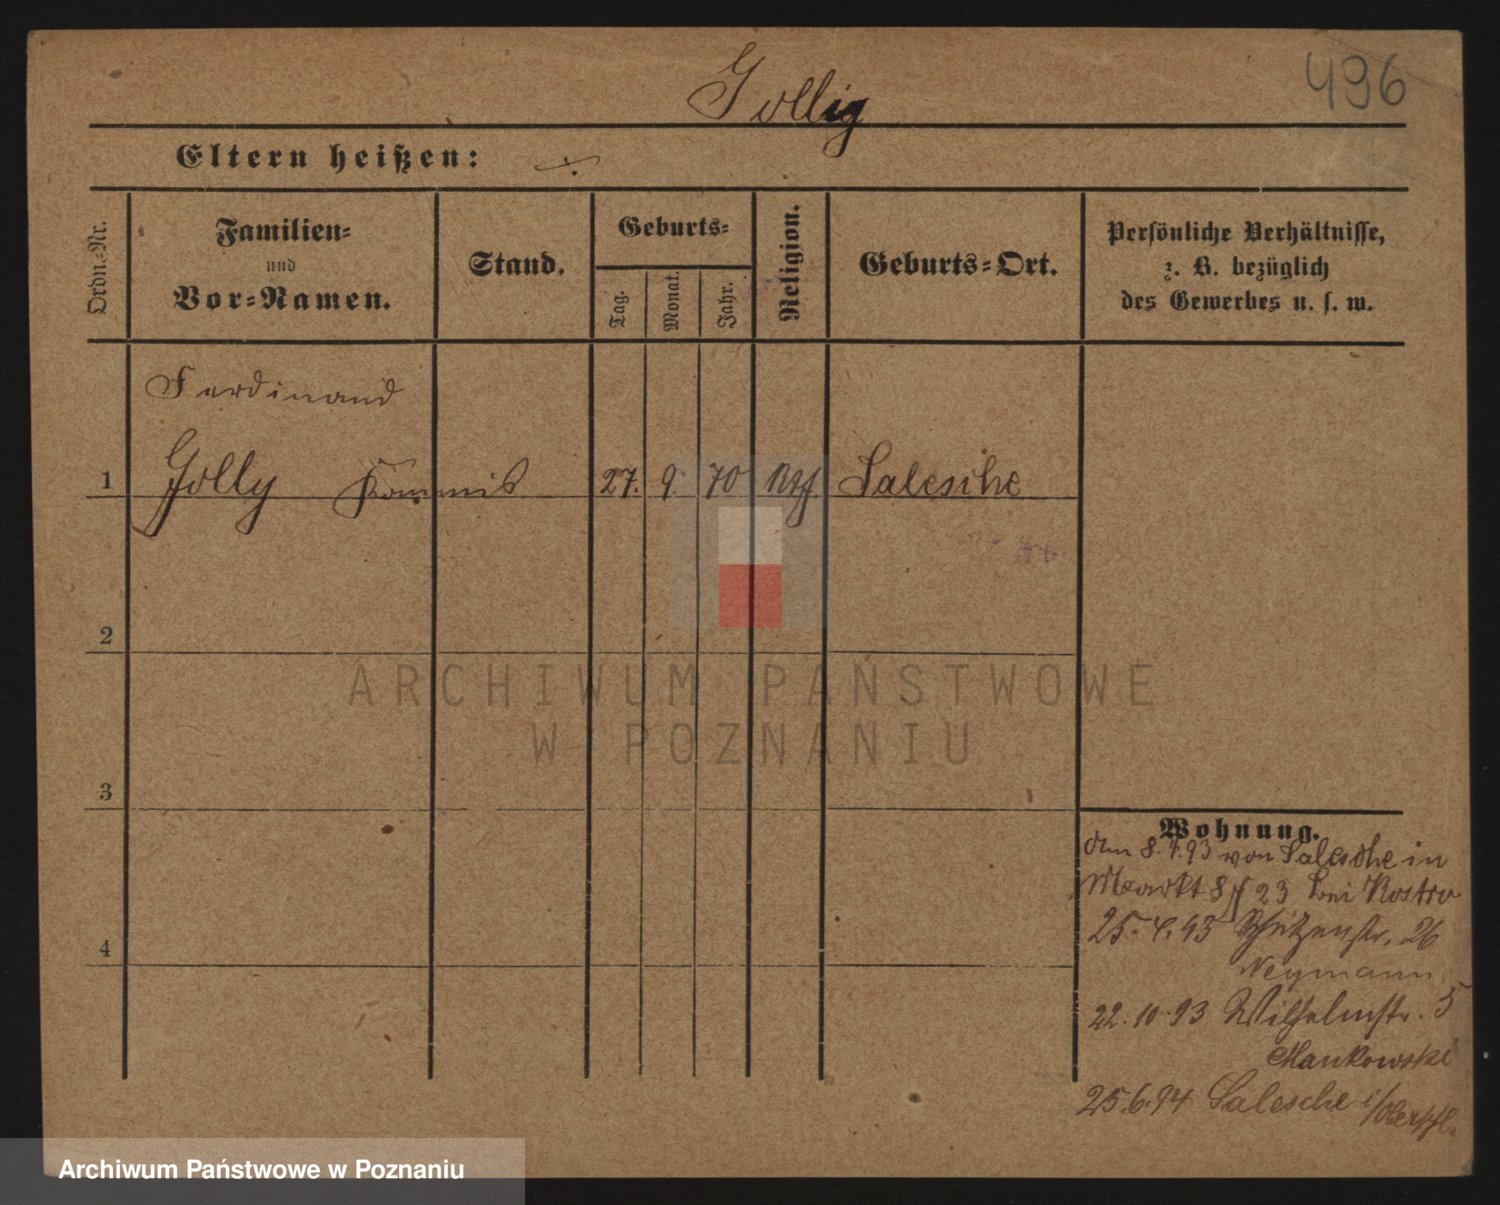 Gollig
496
Eltern heißen:
Ordn.-Nr.
Familien-
und
Vor-Namen.
Stand.
Geburts-
Tag.
Monat.
Jahr.
Religion.
Geburts-Ort.
Persönliche Verhältnisse,
z. B. bezüglich
des Gewerbes u. s. w.
Ferdinand
1 Golly Kommis 27. 9. 70 Salesche
2
3
4
ARCHIWUM PAŃSTWOWE
W POZNANIU
Wohnung.
den 8.4.93 von Salesche in
Markt 8 23 bei Rostro
25.4.93 Schützenstr. 26
Neymann
22.10.93 Wilhelmstr. 5
Mankowski
25.6.94 Salesche i/Oberschl.
Archiwum Państwowe w Poznaniu